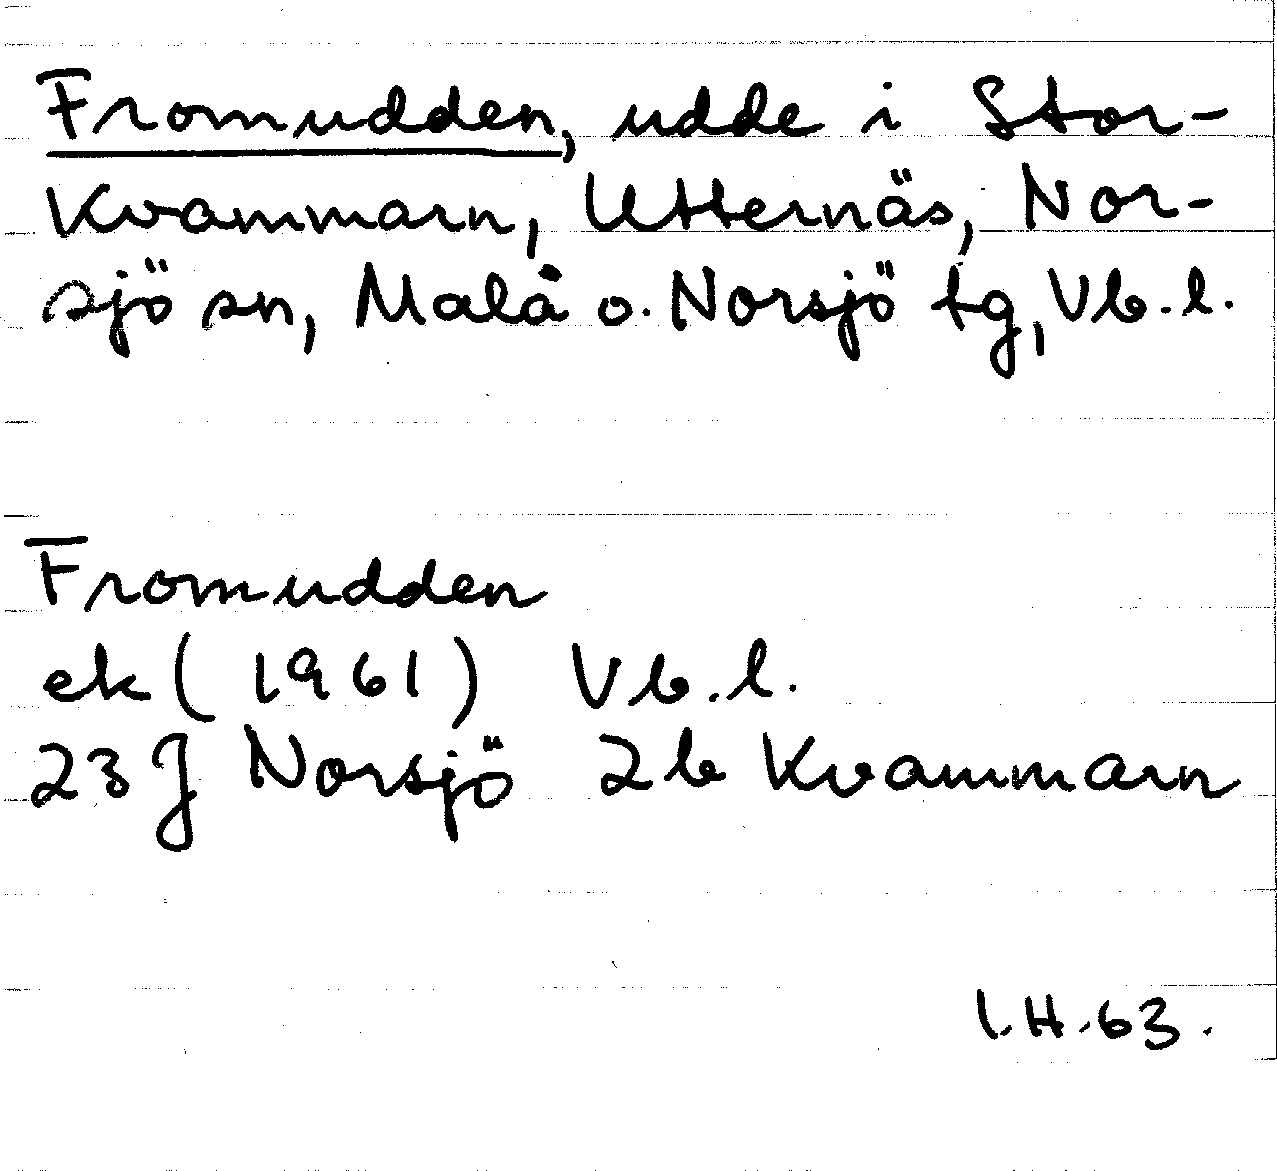 Fromudden, udde i Stor-
Kvammarn, Utternäs, Nor-
sjö sn, Malå o. Norsjö tg, Vb.l.
Fromudden
ek (1961) Vb.l.
23 J Norsjö 2b Kvammarn
I.H. 63.